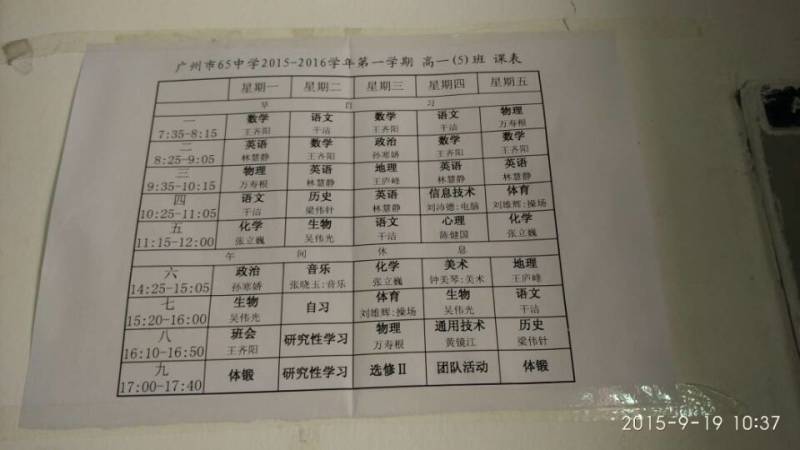 广州市65中学2015-2016学年第一学期 高一(5)班 课表
星期一 星期二 星期三 星期四 星期五
早 自 习
一 数学 语文 数学 语文 物理
7:35-8:15 王齐阳 干洁 王齐阳 干洁 万寿根
二 英语 数学 政治 数学 数学
8:25-9:05 林慧静 王齐阳 孙寒娇 王齐阳 王齐阳
三 物理 英语 地理 英语 英语
9:35-10:15 万寿根 林慧静 王庐峰 林慧静 林慧静
四 语文 历史 英语 信息技术 体育
10:25-11:05 干洁 梁伟针 林慧静 刘沛德:电脑 刘雄辉:操场
五 化学 生物 语文 心理 化学
11:15-12:00 张立巍 吴伟光 干洁 陈健国 张立巍
午 间 休 息
六 政治 音乐 化学 美术 地理
14:25-15:05 孙寒娇 张晓玉:音乐 张立巍 钟美琴:美术 王庐峰
七 生物 自习 体育 生物 语文
15:20-16:00 吴伟光 刘雄辉:操场 吴伟光 干洁
八 班会 研究性学习 物理 通用技术 历史
16:10-16:50 王齐阳 万寿根 黄镜江 梁伟针
九 体锻 研究性学习 选修Ⅱ 团队活动 体锻
17:00-17:40
2015-9-19 10:37